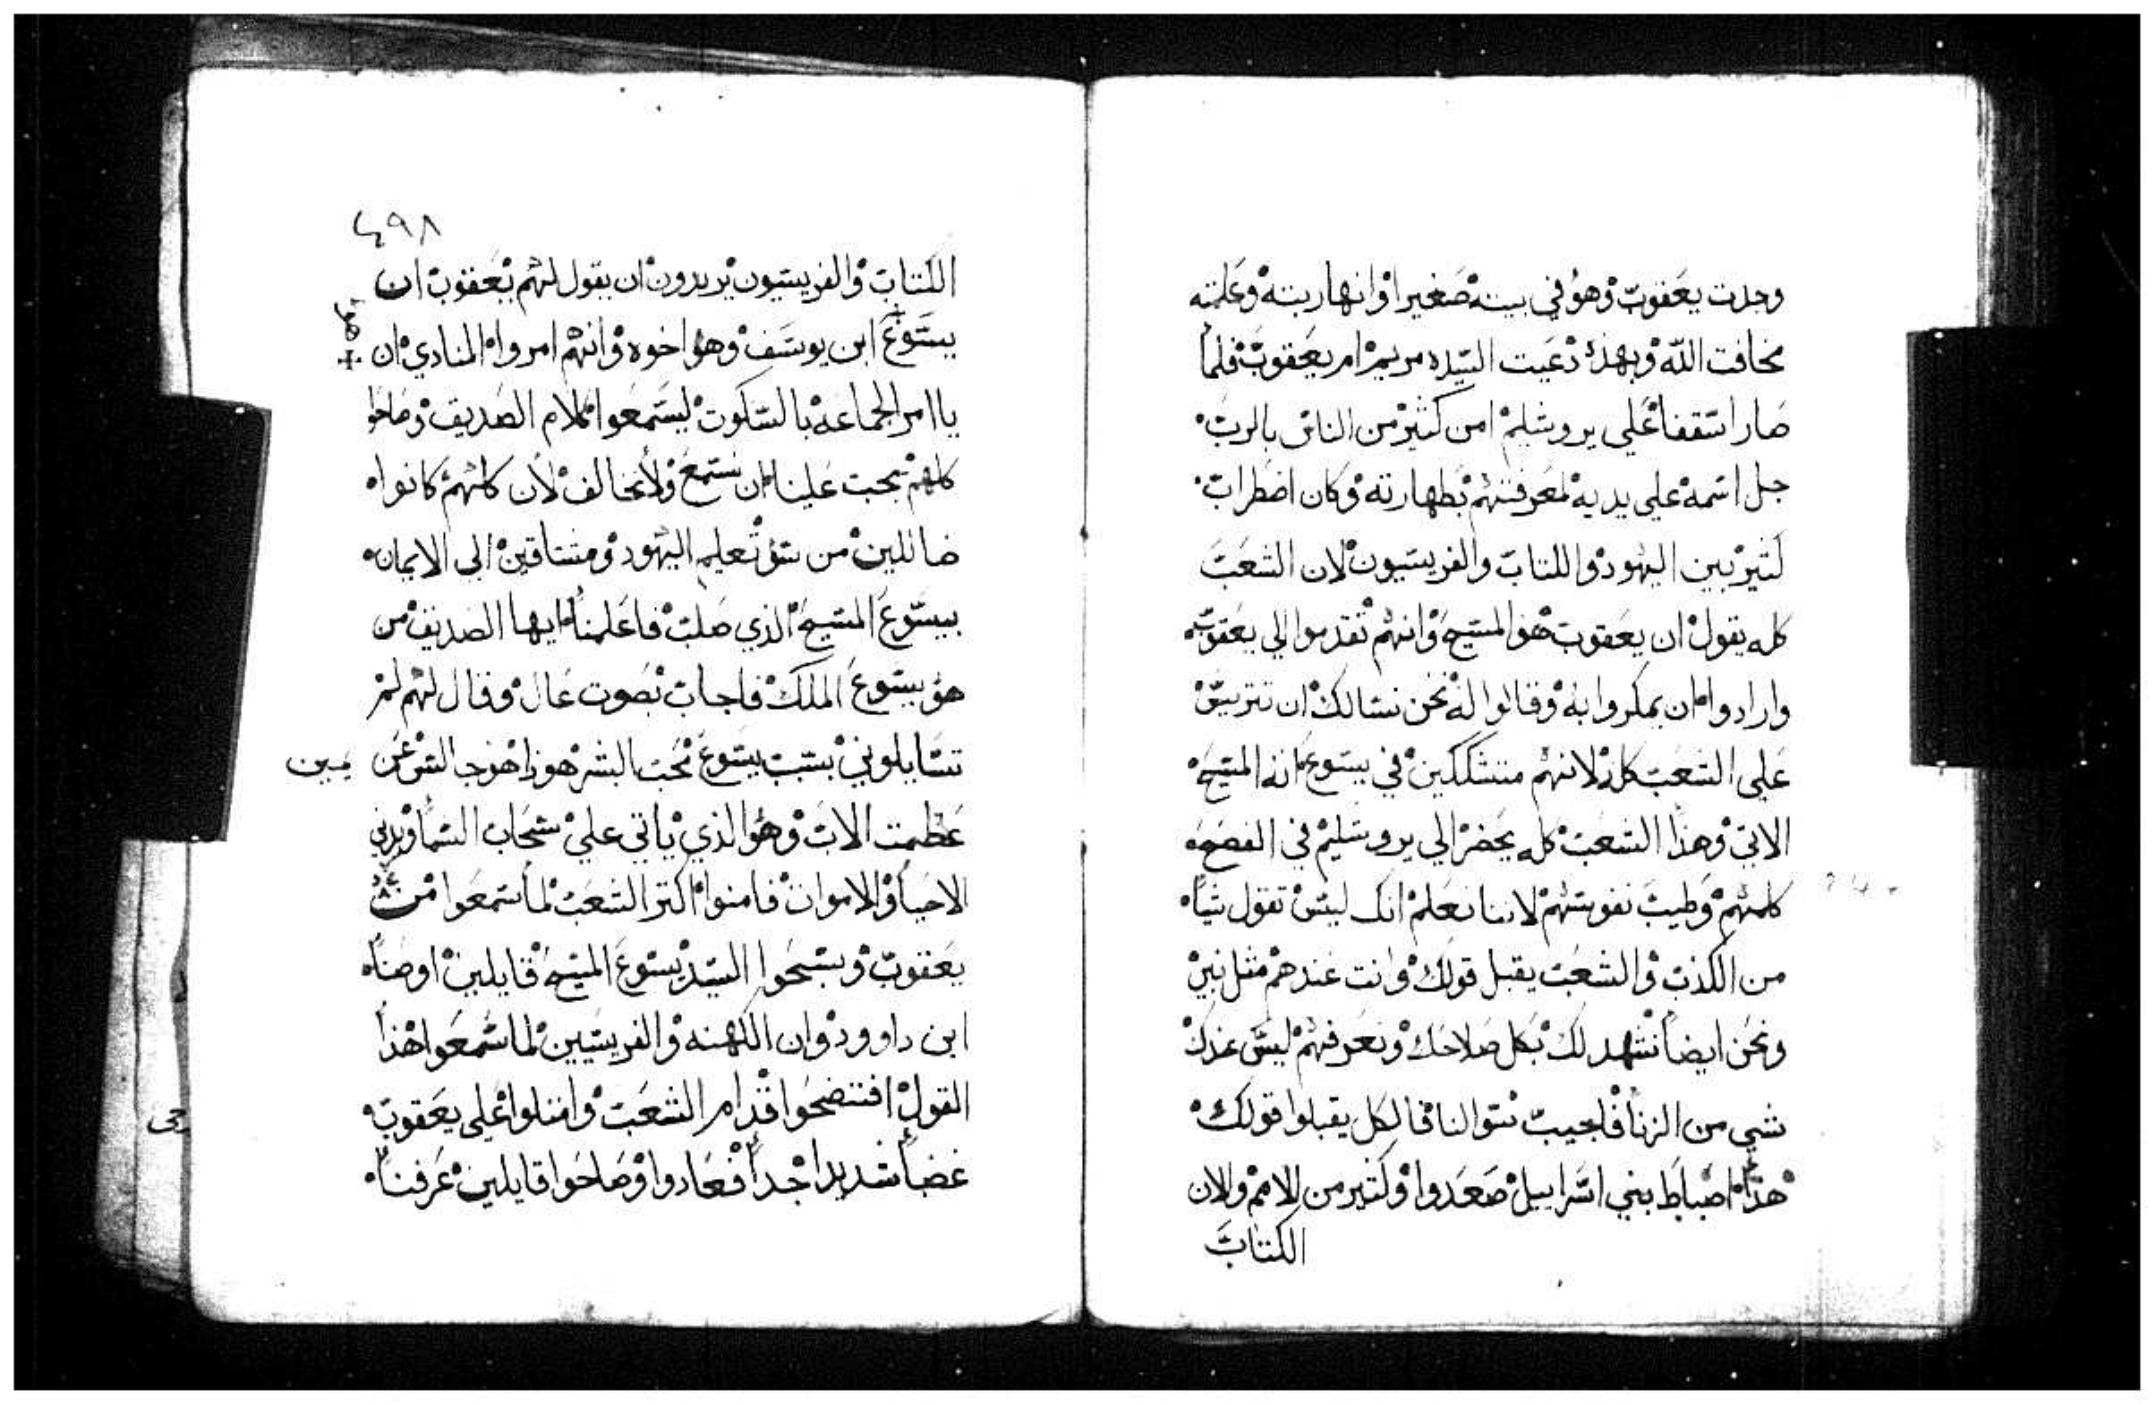 وجدت يعقوب وهو في بيته صغيرا وانها ربته وعلمته
مخافت الله وبهذه دعيت السيده مريم ام يعقوب فلما
صار اسقفا علي يروشليم امن كثير من الناس بالرب
جل اسمه علي يديه لمعرفتهم بطهارته وكان اضطراب
كثير بين اليهود والكتاب والفريسيون لان الشعب
كله يقول ان يعقوب هو المسيح وانهم تقدموا الي يعقوب
وارادوا ان يمكروا به وقالوا له نحن نسالك ان تتربيق
علي الشعب كله لانهم متشككين في يسوع انه المسيح
الاتي وهذا الشعب كله يحضر الي يروشليم في الفصح
كلمهم وطيب نفوسهم لاننا نعلم انك ليس تقول شيا
من الكذب والشعب يقبل قولك وانت عندهم مثل نبي
ونحن ايضا نشهد لك بكل صلاحك ونعرفهم ليس عندك
شي من الزنا فاجيب سوالنا فالكل يقبلوا قولك
هذا اصباط بني اسراييل صعدوا وكثير من الامم والان
الكتاب
٤٩٨
الكتاب والفريسيون يريدون ان يقول لهم يعقوب ان
يسوع ابن يوسف وهو اخوه وانهم امروا المنادي ان
هو
ياامر الجماعه بالسكوت ليسمعوا كلام الصديق وصاحوا
كلهم يجب علينا ان نستمع ولا نخالف لان كلهم كانوا
ضاللين من سو تعليم اليهود ومشتاقين الي الايمان
بيسوع المسيح الذي صلب فاعلمنا ايها الصديق من
هو يسوع الملك فاجاب بصوت عال وقال لهم لم
تسايلوني بسبب يسوع نحب البشر هوذا هو جالس عن
يمين
عظمت الاب وهو الذي ياتي علي سحاب السما ويدين
الاحيا والاموات فامنوا اكتر الشعب لما سمعوا من
يعقوب وسبحوا السيد يسوع المسيح قايلين اوصنا
ابن داوود وان الكهنه والفريسيين لما سمعوا هذا
القول افتضحوا قدام الشعب وامتلوا علي يعقوب
غضبا شديدا جدا فعادوا وصاحوا قايلين عرفنا